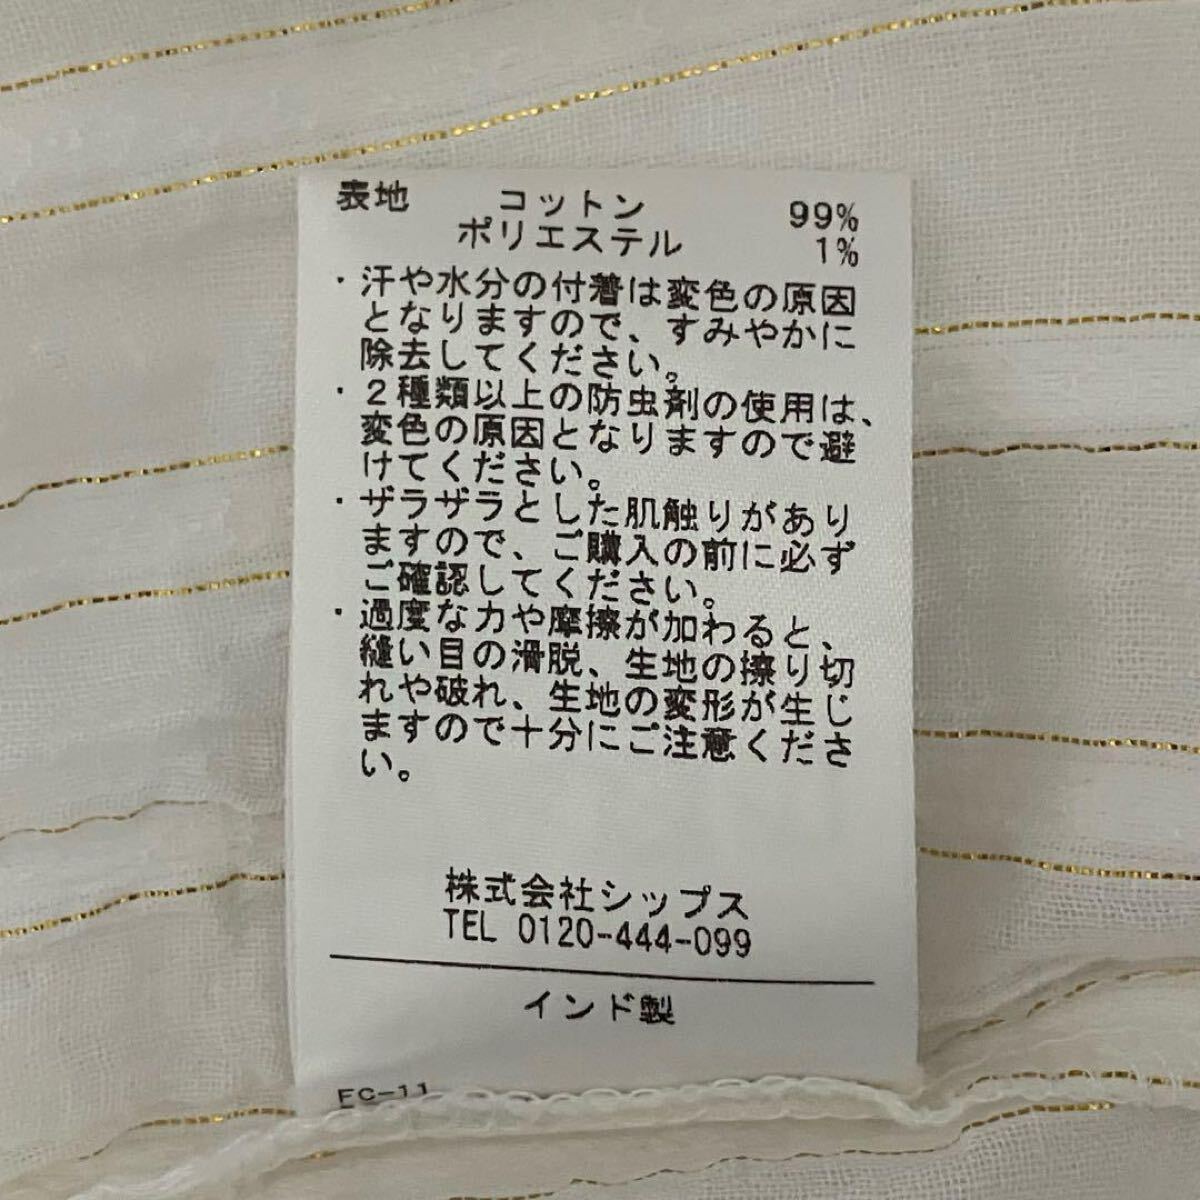 表地 コットン 99%
ポリエステル 1%
・汗や水分の付着は変色の原因
となりますので、すみやかに
除去してください。
・2種類以上の防虫剤の使用は、
変色の原因となりますので避
けてください。
・ザラザラとした肌触りがあり
ますので、ご購入の前に必ず
ご確認してください。
・過度な力や摩擦が加わると、
縫い目の滑脱、生地の擦り切
れや破れ、生地の変形が生じ
ますので十分にご注意くださ
い。
株式会社シップス
TEL 0120-444-099
インド製
FC-11